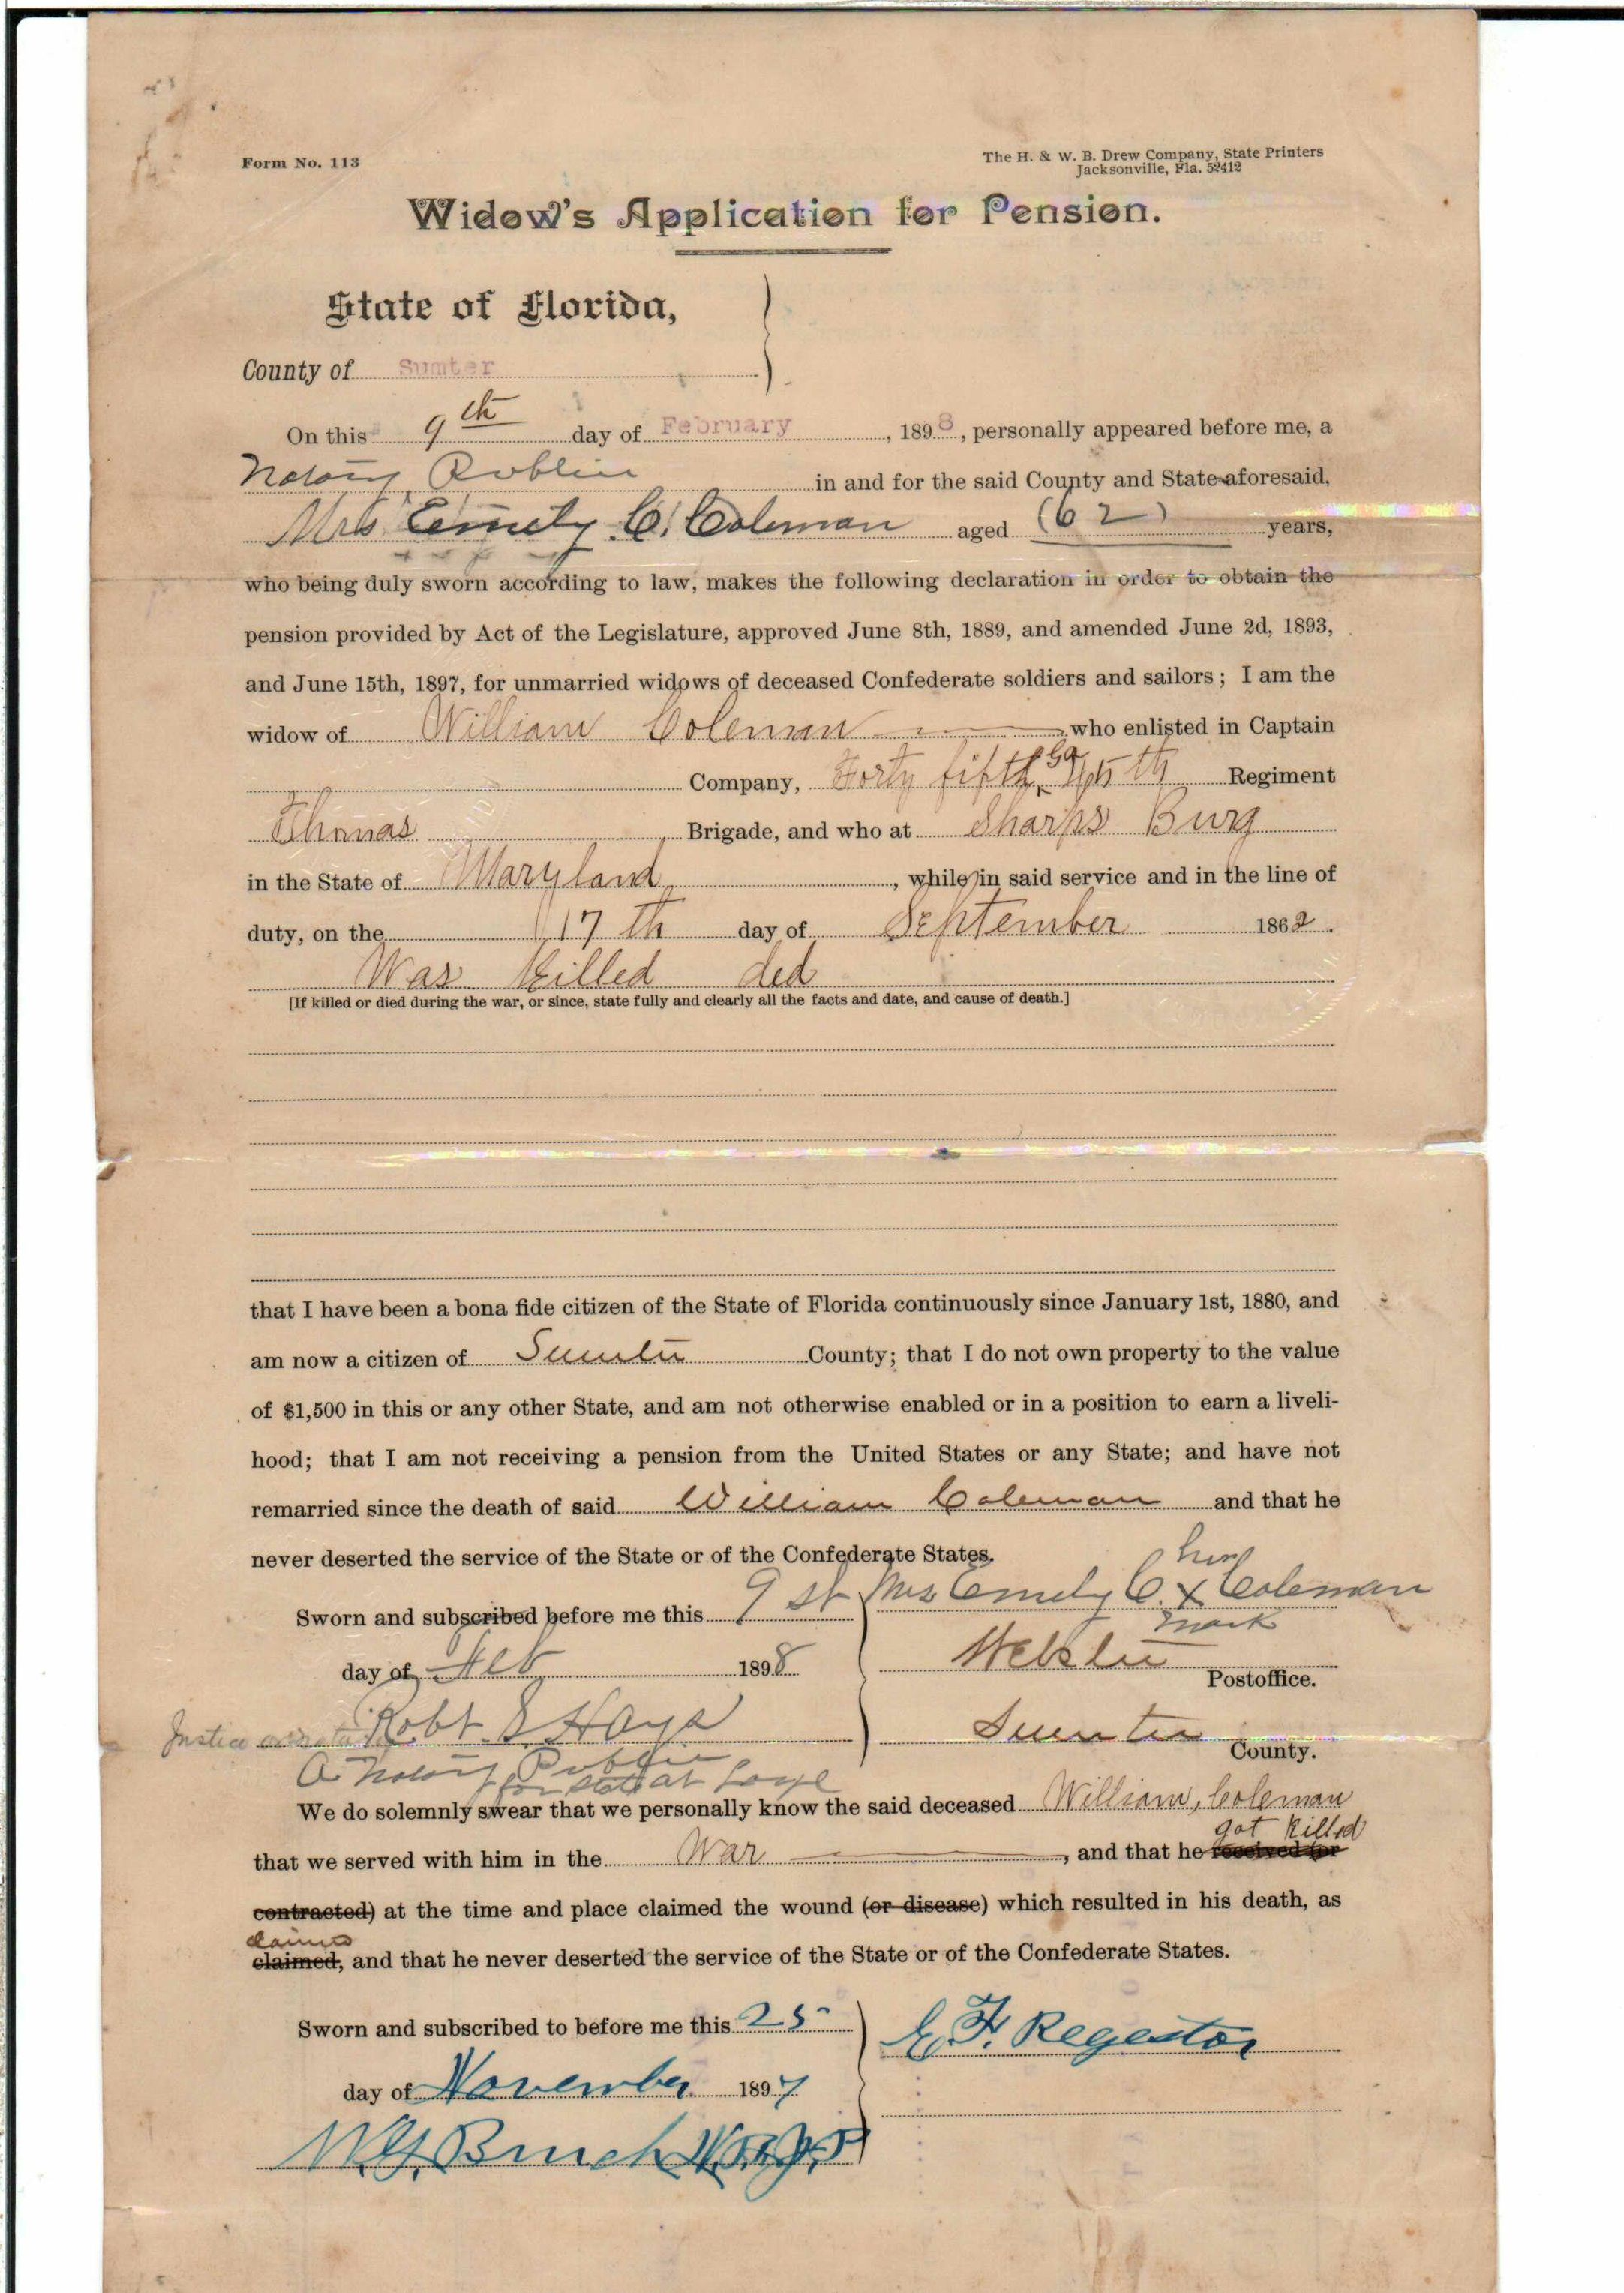 Form No. 113
The H. & W. B. Drew Company, State Printers
Jacksonville, Fla. 52412
Widow's Application for Pension.
State of Florida,
County of Sumter
On this 9th day of February, 1898, personally appeared before me, a
Notary Publie in and for the said County and State aforesaid,
Mrs Emely C. Coleman aged (62) years,
who being duly sworn according to law, makes the following declaration in order to obtain the
pension provided by Act of the Legislature, approved June 8th, 1889, and amended June 2d, 1893,
and June 15th, 1897, for unmarried widows of deceased Confederate soldiers and sailors; I am the
widow of William Coleman who enlisted in Captain
Company, Forty fifth Ga 45th Regiment
Thomas Brigade, and who at Sharps Burg
in the State of Maryland, while in said service and in the line of
duty, on the 17th day of September 1862.
Was Killed ded
[If killed or died during the war, or since, state fully and clearly all the facts and date, and cause of death.]
that I have been a bona fide citizen of the State of Florida continuously since January 1st, 1880, and
am now a citizen of Sumter County; that I do not own property to the value
of $1,500 in this or any other State, and am not otherwise enabled or in a position to earn a liveli-
hood; that I am not receiving a pension from the United States or any State; and have not
remarried since the death of said William Coleman and that he
never deserted the service of the State or of the Confederate States.
her
Sworn and subscribed before me this 9 st Mrs Emely C. x Coleman
mark
day of Feb 1898 Webster Postoffice.
Robt. S. Hays Sumter County.
A Notary Public
for State at Large
We do solemnly swear that we personally know the said deceased William, Coleman
got Killed
that we served with him in the War, and that he received (or
contracted) at the time and place claimed the wound (or disease) which resulted in his death, as
claimed, and that he never deserted the service of the State or of the Confederate States.
Sworn and subscribed to before me this 25 E. F. Regestor
day of November 1897